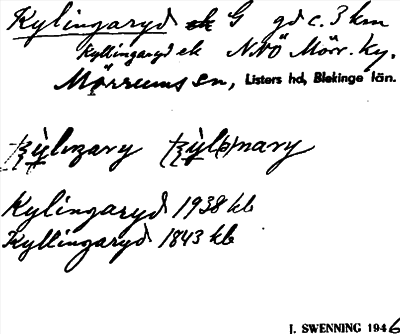 Kylingaryd ek G gd c. 3 km
Kyllingaryd ek NNÖ Mörr. ky.
Mörrums sn, Listers hd, Blekinge län.
Kylingaryd 1938 kb
Kyllingaryd 1843 kb
J. SWENNING 1946